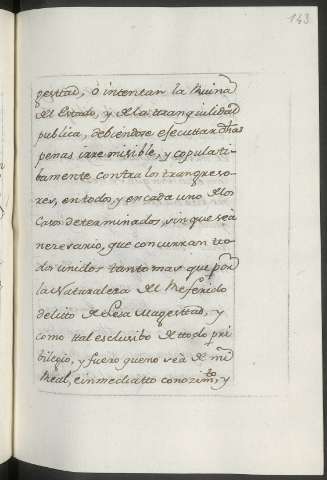 143
gesttad, ò intentan la Ruina
del Estado, y de la tranquilidad
publica, debiendose esecuttar dhas
penas irremisible, y copulati-
bamente contra los trangreso-
res, en todos, y en cada uno de los
Casos determinados, sin que seà
neresario, que concurran to-
dos unidos tanto mas que por
la Naturaleza del Referido
delito de Lesa Magesttad, y
como ttal esclusibo de ttodo pri
bilegio, y fuero que no seà de mi
Real, e inmediatto conozimto, y